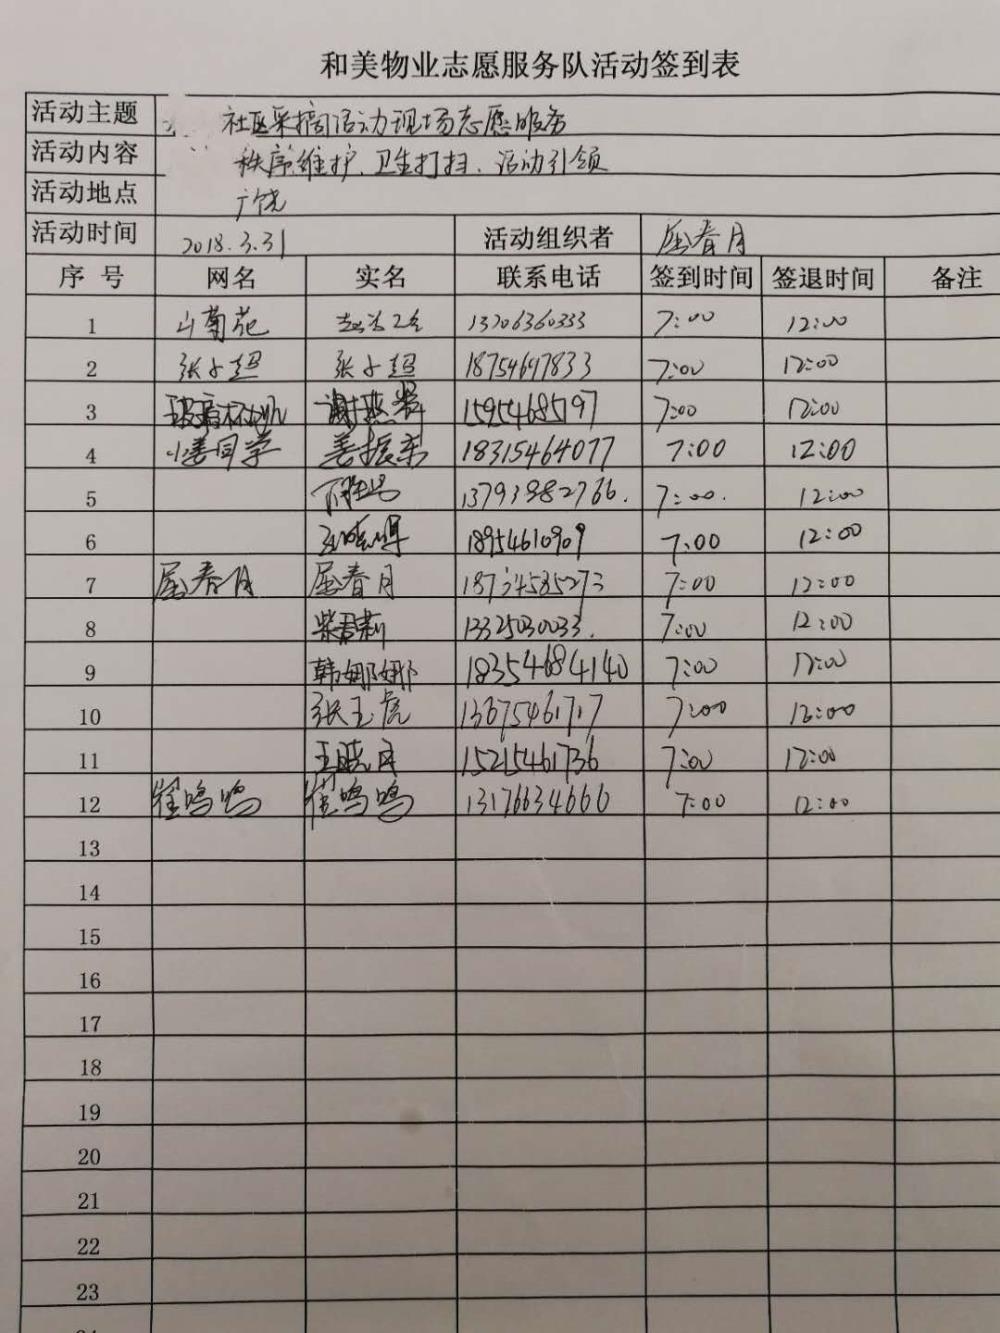 和美物业志愿服务队活动签到表
活动主题 社区采摘活动现场志愿服务
活动内容 秩序维护、卫生打扫、活动引领
活动地点 广饶
活动时间 2018.3.31 活动组织者 屈春月
序号 网名 实名 联系电话 签到时间 签退时间 备注
1 山菊花 13706360333 7:00 12:00
2 张小超 张小超 18754697833 7:00 12:00
3 15954685197 7:00 12:00
4 小姜同学 姜振东 18315464077 7:00 12:00
5 13793982766. 7:00. 12:00
6 18954610909 7:00 12:00
7 屈春月 屈春月 7:00 12:00
8 柴君莉 7:00 12:00
9 韩娜娜 18354684140 7:00 12:00
10 张玉虎 13675461717 7:00 12:00
11 王晓丹 15215461736 7:00 12:00
12 崔鸣鸣 崔鸣鸣 13176634666 7:00 12:00
13
14
15
16
17
18
19
20
21
22
23